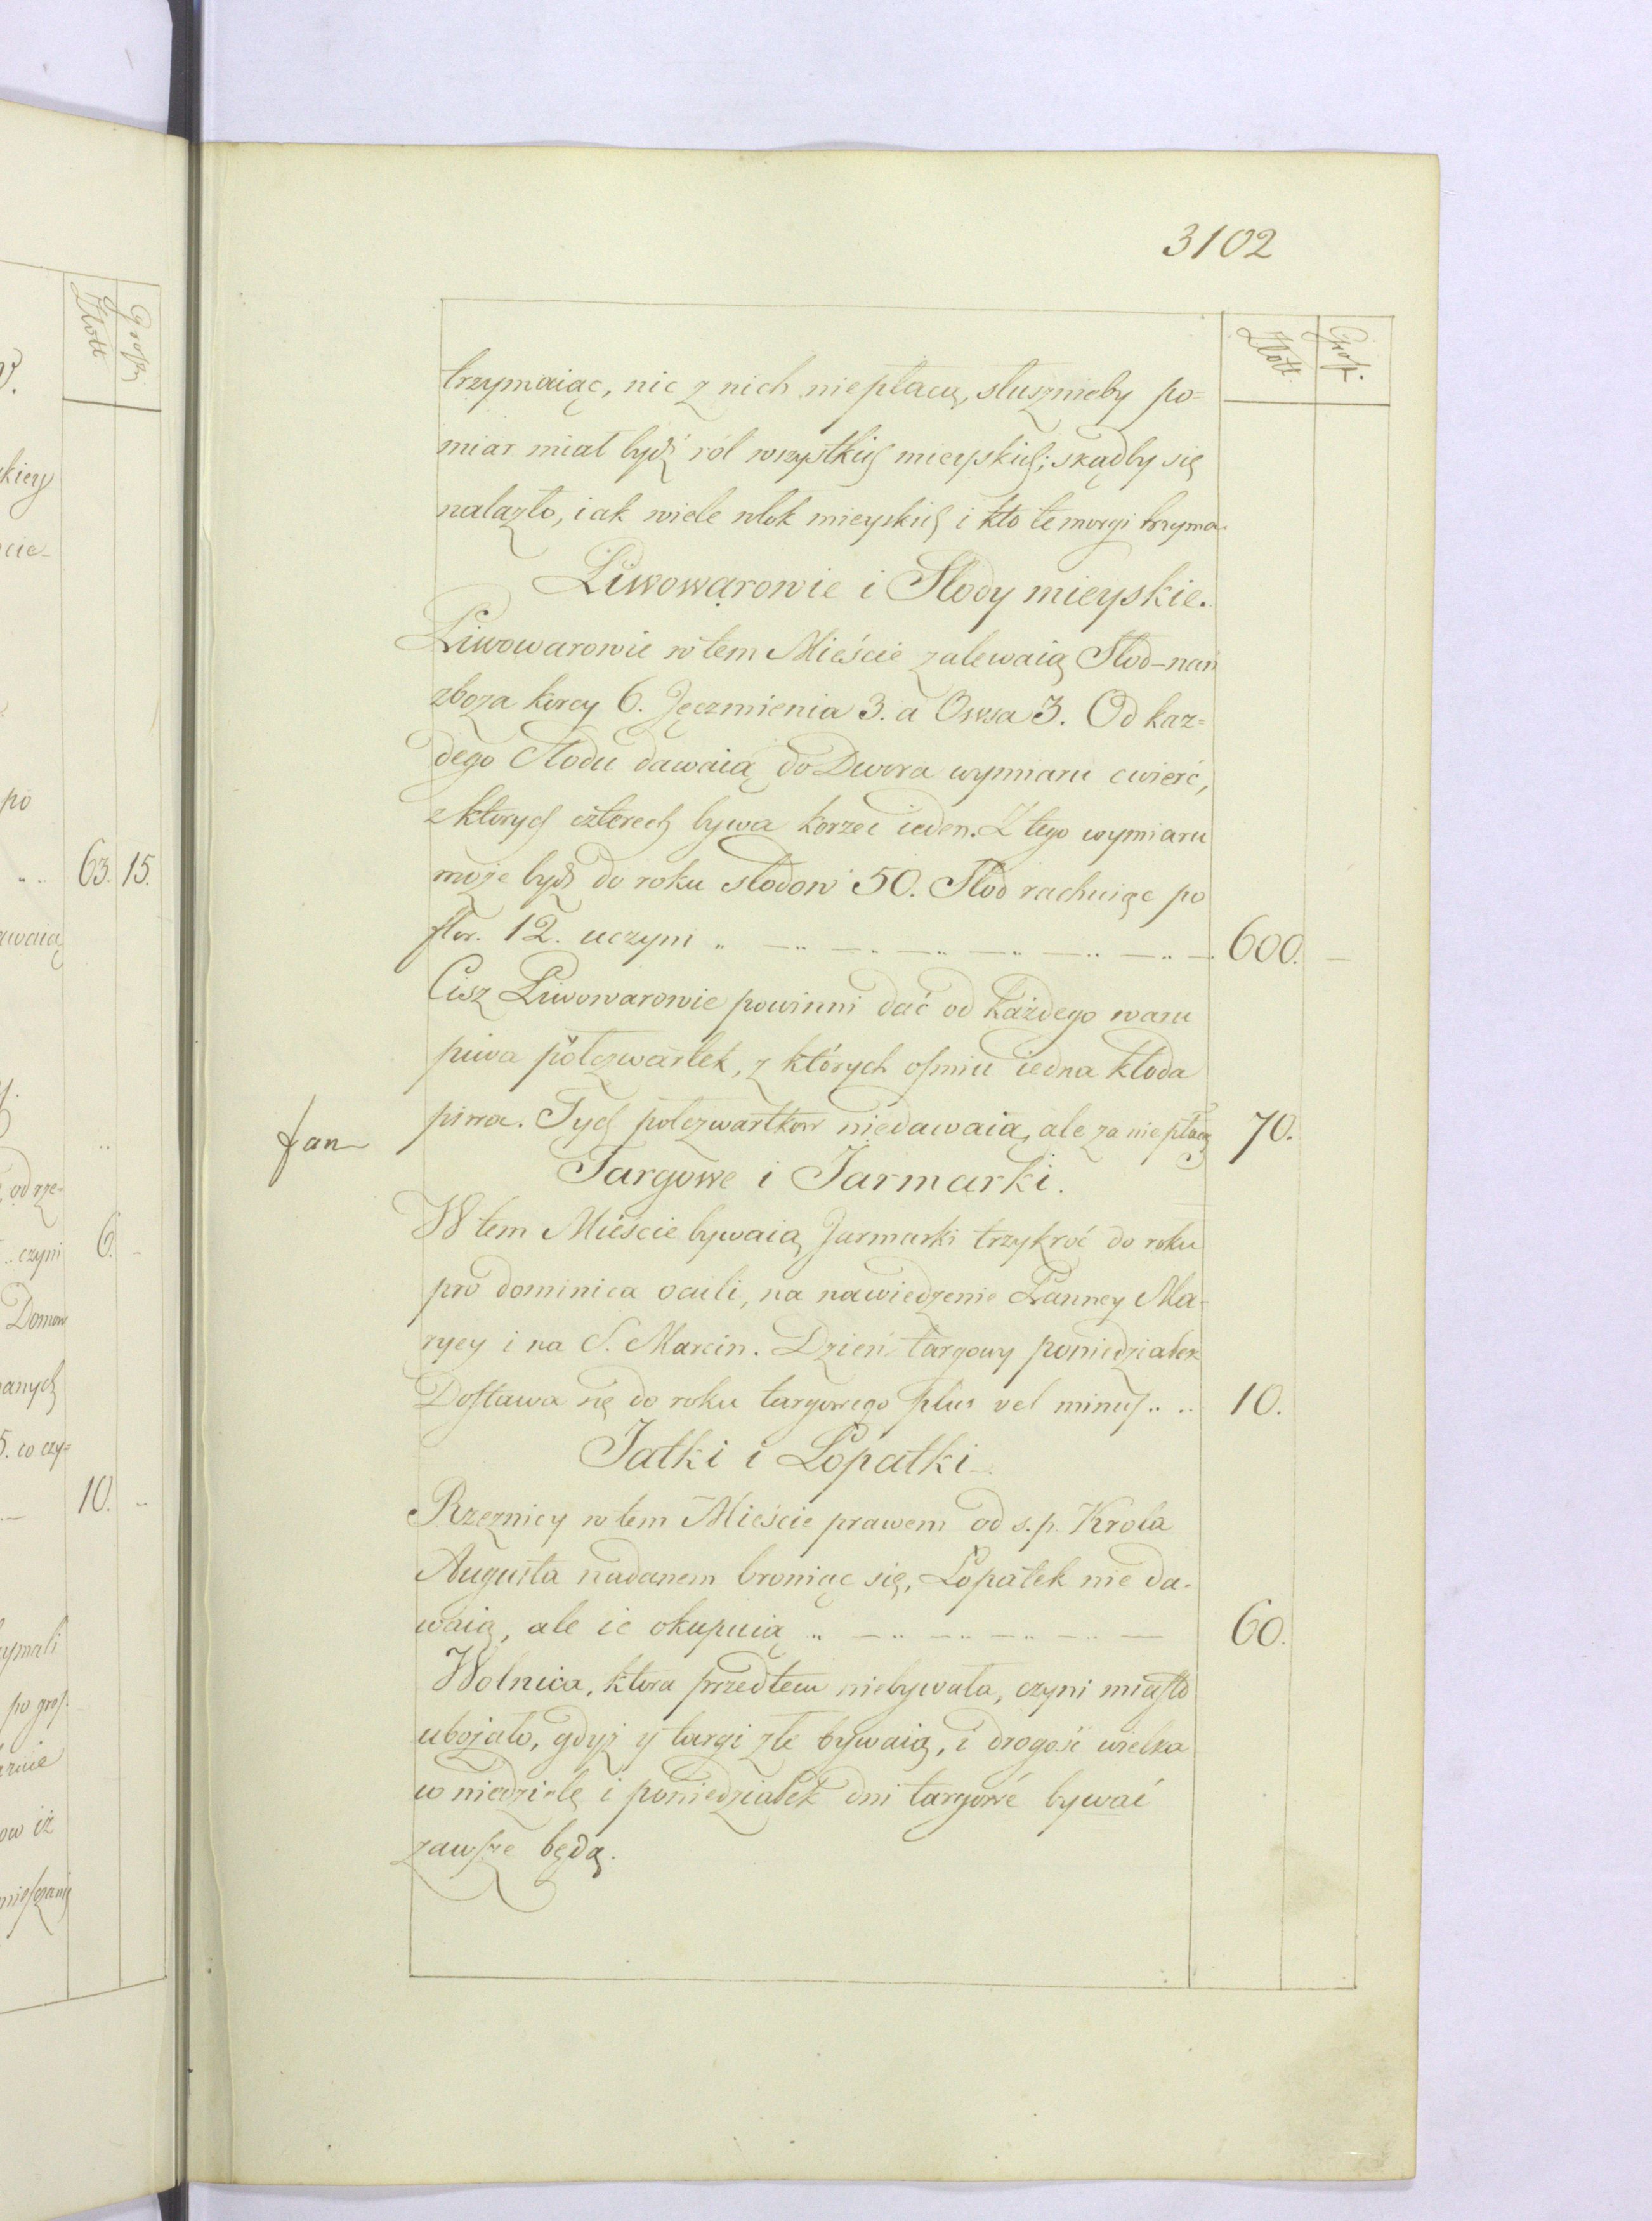 3102
Złott. Grosz.
trzymaiąc, nic z nich niepłacą, słusznieby po=
miar miał bydź ról wszystkich mieyskich; skądby się
nalazło, iak wiele włok mieyskich i kto te morgi trzyma.
Piwowarowie i Słody mieyskie.
Piwowarowie w tem Mieście zalewaią Słod – nań
zboża korcy 6. Jęczmienia 3. a Owsa 3. Od każ=
dego Słodu dawaią do Dwora wymiaru cwierć,
z ktorych czterech bywa korzec ieden. Z tego wymiaru
może bydź do roku słodow 50. Słod rachuiąc po
flor. 12. uczyni 600. –
Cisz Piwowarowie powinni dać od każdego waru
piwa półczwartek, z których ośmiu iedna kłoda
piwa. Tych połczwartkow niedawaią, ale za nie płacą 70.
fan
Targowe i Jarmarki.
W tem Mieście bywaią Jarmarki trzykroć do roku
pro dominica oculi, na nawiedzenie Panney Ma-
ryey i na S. Marcin. Dzień targowy poniedziałek
Dostawa się do roku targowego plus vel minus .. .. 10.
Jatki i Łopatki
Rzeznicy w tem Mieście prawem od s. p. Krola
Augusta nadanem broniąc się, Łopatek nie da-
waią, ale ie okupuią 60.
Wolnica, ktora przedtem niebywała, czyni miasto
ubożało, gdyż y targi złe bywaią, i drogość wielka
w niedzielę i poniedziałek dni targowe bywać
zawsze będą.
63. 15.
6. –
10.